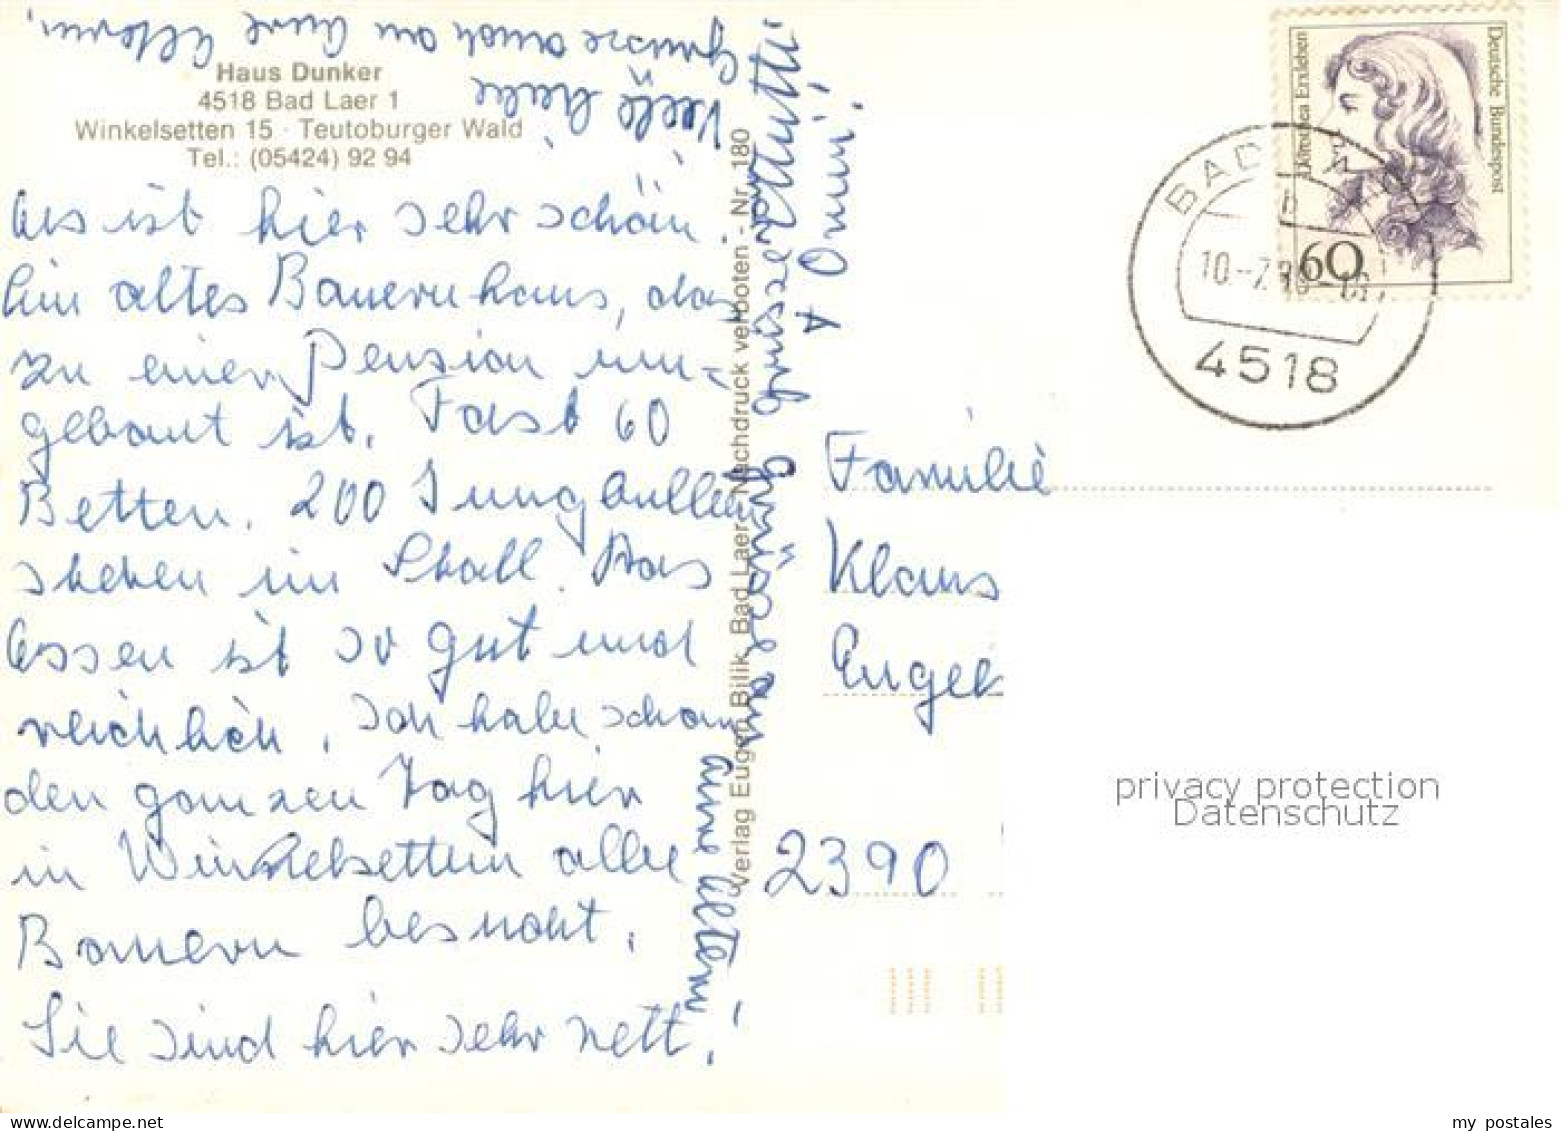 Haus Dunker
4518 Bad Laer 1
Winkelsetten 15 · Teutoburger Wald
Tel.: (05424) 92 94
Es ist hier sehr schön.
Ein altes Bauernhaus, das
zu einer Pension um-
gebaut ist. Fast 60
Betten. 200 Jungbullen
stehen im Stall. Das
Essen ist so gut und
reichlich. Ich habe schon
den ganzen Tag hier
in Winkelsetten alle
Bauern besucht.
Sie sind hier sehr nett!
Viele liebe
Grüsse auch an Eure Eltern,
Grüsse an
Eure Eltern!
Verlag Eugen Bilik, Bad Laer · Nachdruck verboten - Nr. 180
Deutsche Bundespost
Dorothea Erxleben
60
BAD LAER
10.-7.
4518
Familie
Klaus
Engel
2390
privacy protection
Datenschutz
my postales